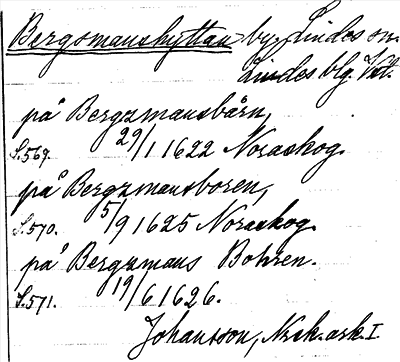 Bergsmanshyttan by, Lindes sn.
Lindes blg. Vst.
på Bergzmansbårn,
S.569. 29/1 1622 Noraskog.
på Bergzmansboren,
S.570. 5/9 1625 Noraskog.
på Bergzmans Bohren.
S.571. 19/6 1626.
Johansson, Nsk.ark.I